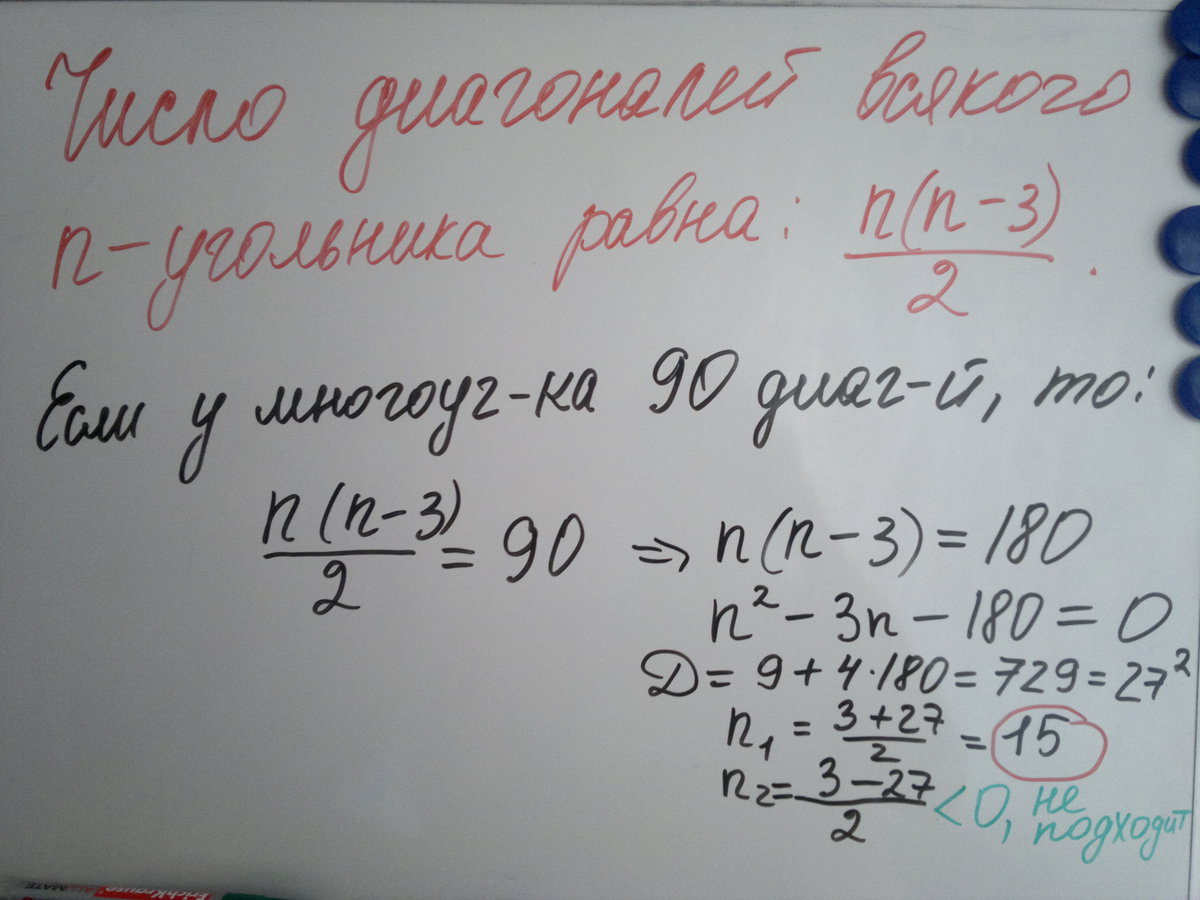 Число диагоналей всякого
n-угольника равна: n(n-3)/2.
Если у многоуг-ка 90 диаг-й, то:
n(n-3)/2 = 90 => n(n-3)=180
n² - 3n - 180 = 0
D = 9 + 4·180 = 729 = 27²
n₁ = (3+27)/2 = 15
n₂ = (3-27)/2 < 0, не подходит
ErichKrause